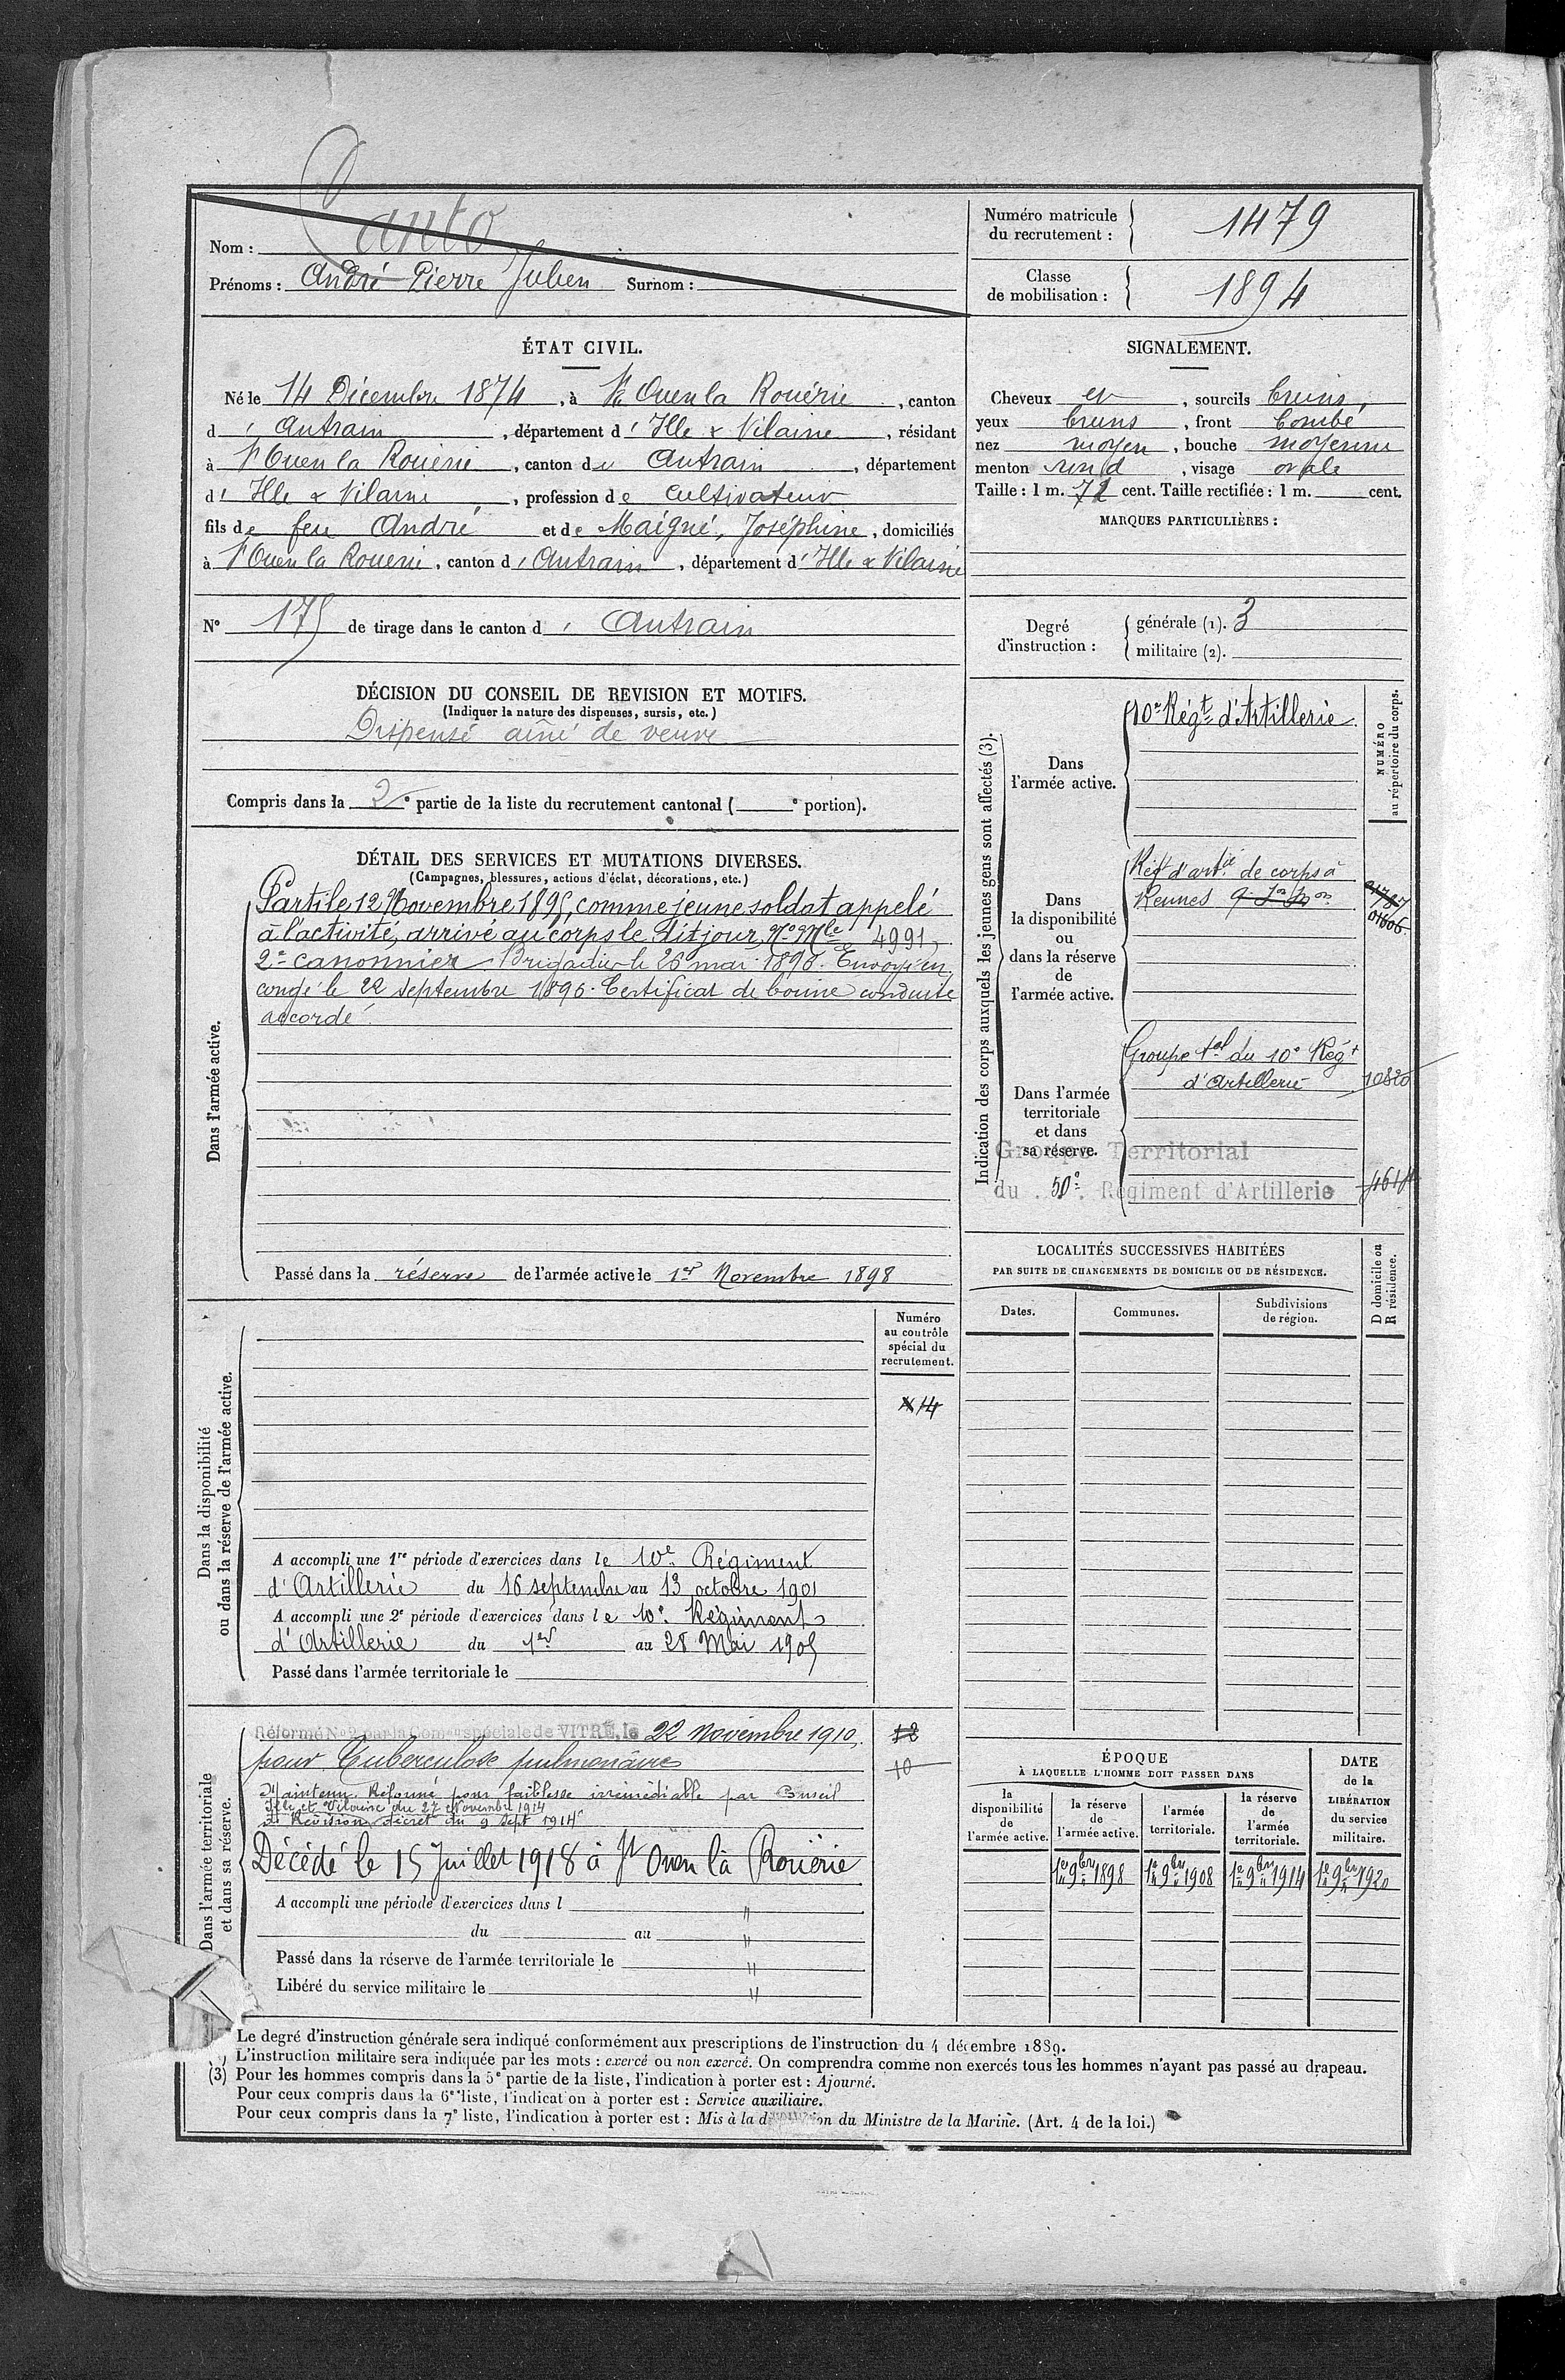 Nom : Canto
Prénoms : André Pierre Julien Surnom :
Numéro matricule du recrutement : 1479
Classe de mobilisation : 1894
ÉTAT CIVIL.
Né le 14 Décembre 1874, à St Ouen la Rouërie, canton
d' Antrain, département d' Ille & Vilaine, résidant
à St Ouen la Rouërie, canton d' Antrain, département
d' Ille & Vilaine, profession de cultivateur
fils de feu André et de Maigné, Joséphine, domiciliés
à St Ouen la Rouerie, canton d' Antrain, département d' Ille & Vilaine
N° 175 de tirage dans le canton d' Antrain
SIGNALEMENT.
Cheveux et, sourcils bruns,
yeux bruns, front bombé,
nez moyen, bouche moyenne
menton rond, visage ovale
Taille : 1 m. 71 cent. Taille rectifiée : 1 m. cent.
MARQUES PARTICULIÈRES :
Degré d'instruction :
générale (1). 3
militaire (2).
DÉCISION DU CONSEIL DE REVISION ET MOTIFS.
(Indiquer la nature des dispenses, sursis, etc.)
Dispensé aîné de veuve
Compris dans la 2e partie de la liste du recrutement cantonal ( e portion).
DÉTAIL DES SERVICES ET MUTATIONS DIVERSES.
(Campagnes, blessures, actions d'éclat, décorations, etc.)
Dans l'armée active.
Parti le 12 Novembre 1895, comme jeune soldat appelé
à l'activité, arrivé au corps le dit jour, No Mle 4991,
2e canonnier. Brigadier le 26 mai 1896. Envoyé en
congé le 22 septembre 1896. Certificat de bonne conduite
accordé.
Passé dans la réserve de l'armée active le 1er Novembre 1898
Indication des corps auxquels les jeunes gens sont affectés (3).
NUMÉRO au répertoire du corps.
Dans
l'armée active.
10e Régt d'Artillerie
Dans
la disponibilité
ou
dans la réserve
de
l'armée active.
Régt d'artie de corps à
Rennes
Dans l'armée
territoriale
et dans
sa réserve.
Groupe tal du 10e Régt
d'Artillerie 10820
Groupe Territorial
du 50e Régiment d'Artillerie
LOCALITÉS SUCCESSIVES HABITÉES
PAR SUITE DE CHANGEMENTS DE DOMICILE OU DE RÉSIDENCE.
Dates. Communes. Subdivisions de région. D domicile ou R résidence.
Dans la disponibilité
ou dans la réserve de l'armée active.
Numéro
au contrôle
spécial du
recrutement.
A accompli une 1re période d'exercices dans le 10e Régiment
d'Artillerie du 16 septembre au 13 octobre 1901
A accompli une 2e période d'exercices dans le 10e Régiment
d'Artillerie du 1er au 28 Mai 1905
Passé dans l'armée territoriale le
Dans l'armée territoriale
et dans sa réserve.
Réformé No 2 par la Comon spéciale de VITRÉ, le 22 novembre 1910,
pour Tuberculose pulmonaire
10
Maintenu Réformé pour faiblesse irrémédiable par Conseil
Ille et Vilaine du 27 Novembre 1914
de Révision décret du 9 Sept 1914
Décédé le 15 Juillet 1918 à St Ouen la Rouërie
A accompli une période d'exercices dans l "
du au "
Passé dans la réserve de l'armée territoriale le "
Libéré du service militaire le "
ÉPOQUE
À LAQUELLE L'HOMME DOIT PASSER DANS
la disponibilité de l'armée active.
la réserve de l'armée active.
l'armée territoriale.
la réserve de l'armée territoriale.
DATE de la LIBÉRATION du service militaire.
1er 9bre 1898 1er 9bre 1908 1er 9bre 1914 1er 9bre 1920
Le degré d'instruction générale sera indiqué conformément aux prescriptions de l'instruction du 4 décembre 1889.
L'instruction militaire sera indiquée par les mots : exercé ou non exercé. On comprendra comme non exercés tous les hommes n'ayant pas passé au drapeau.
(3) Pour les hommes compris dans la 5e partie de la liste, l'indication à porter est : Ajourné.
Pour ceux compris dans la 6e liste, l'indication à porter est : Service auxiliaire.
Pour ceux compris dans la 7e liste, l'indication à porter est : Mis à la disposition du Ministre de la Marine. (Art. 4 de la loi.)